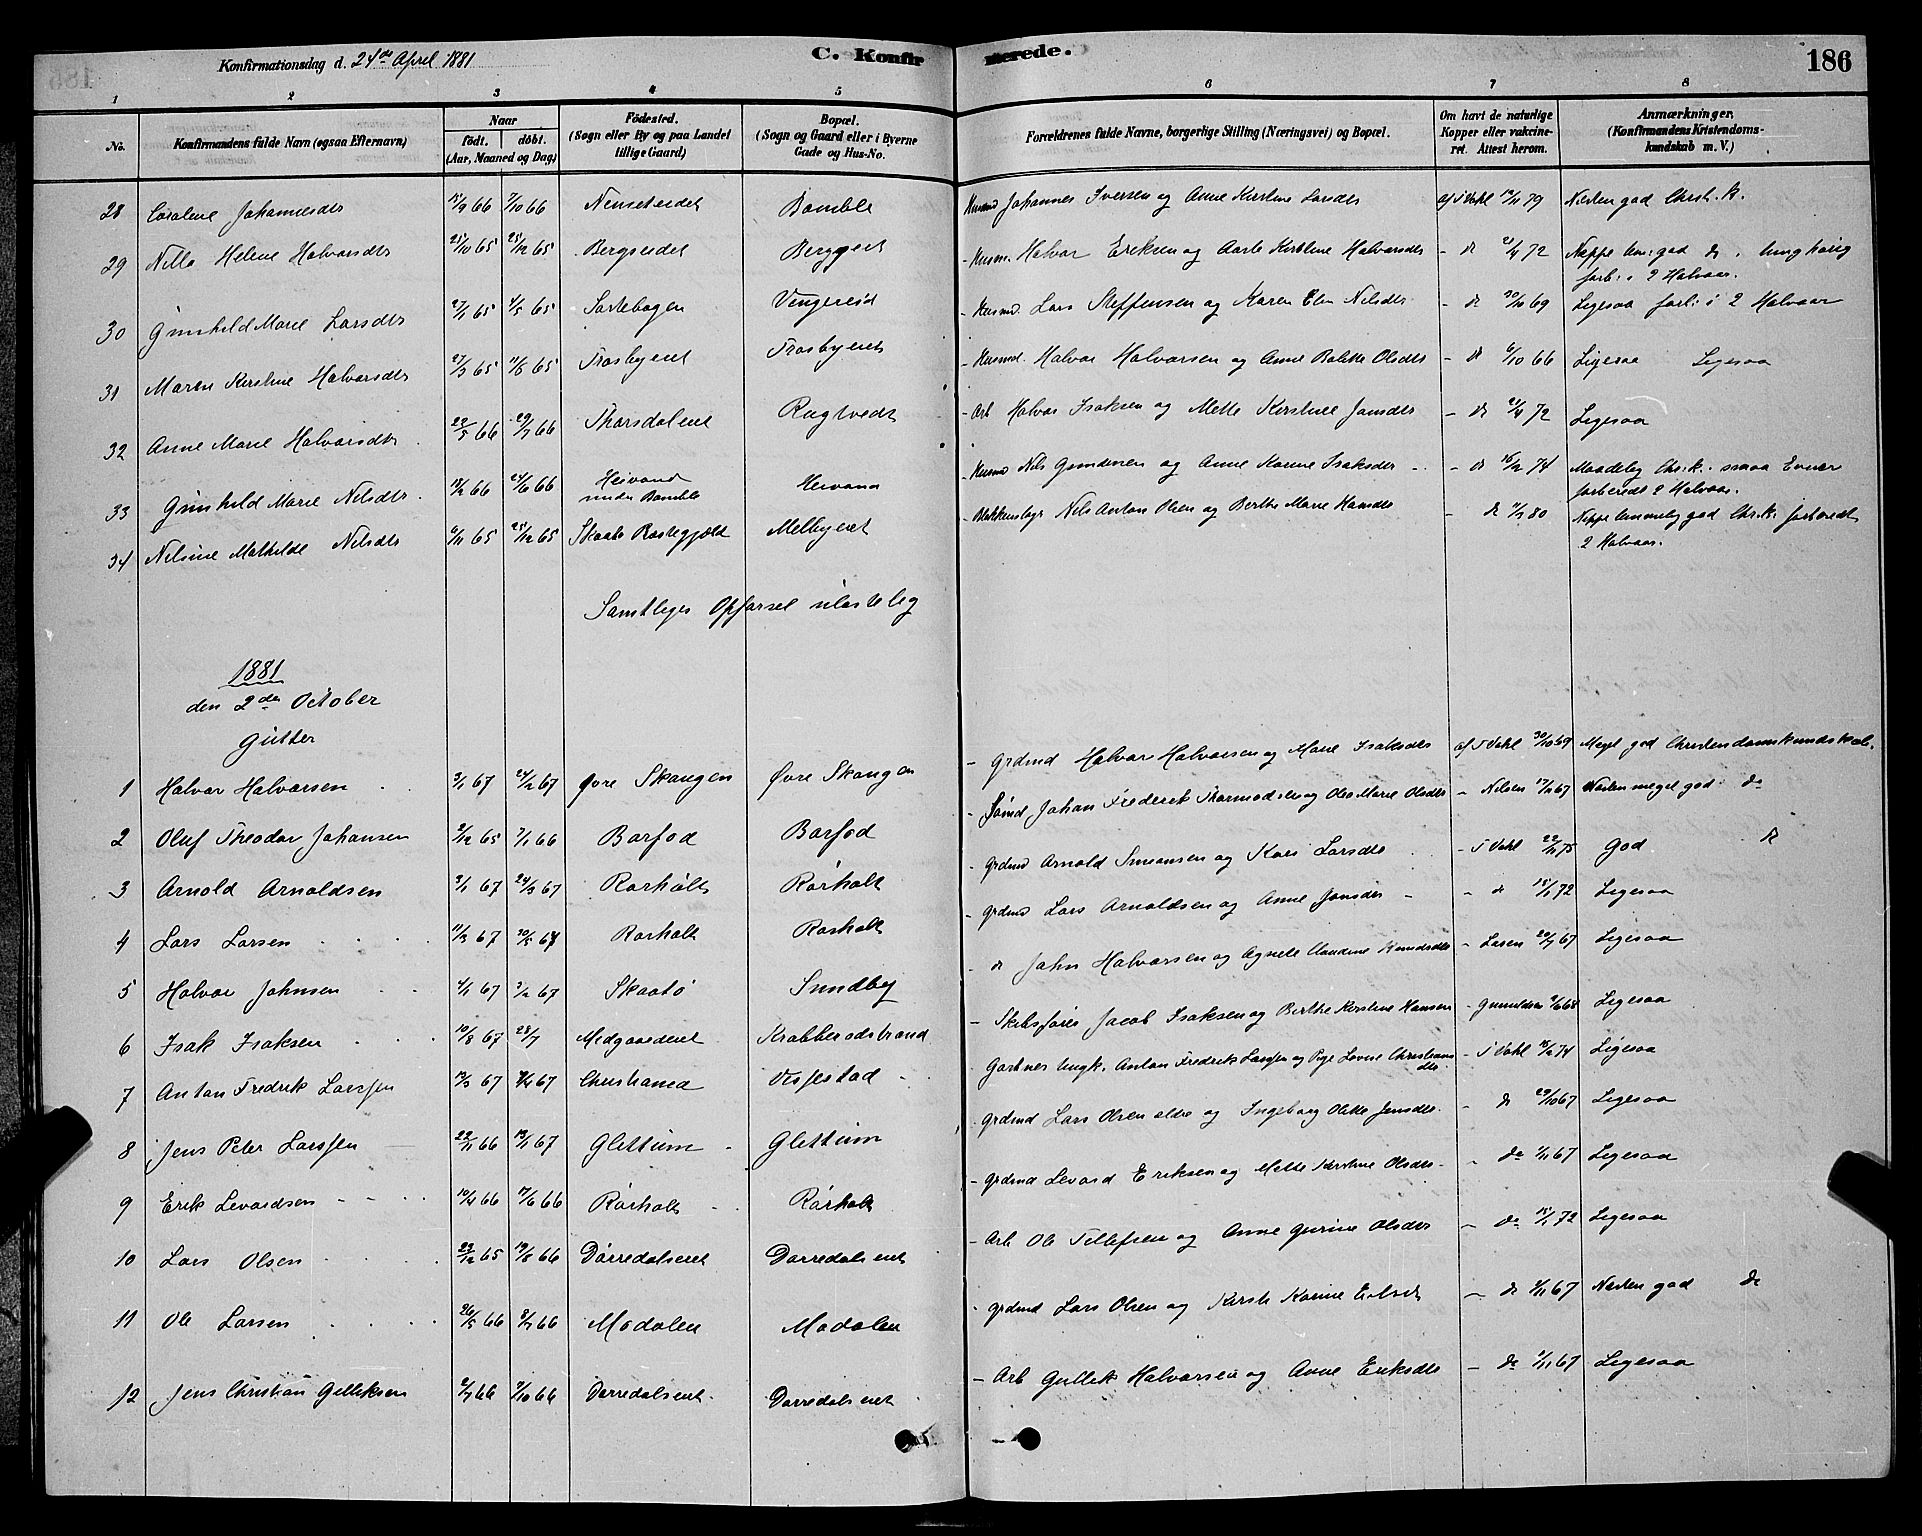 Konfirmationsdag d. 24de April 1881
C. Konfirmerede.
186
1 2 3 4 5 6 7 8
No. Konfirmandens fulde Navn (ogsaa Efternavn) Naar født. døbt. (Aar, Maaned og Dag) Fødested. (Sogn eller By og paa Landet tillige Gaard) Bopæl. (Sogn og Gaard eller i Byerne Gade og Hus-No. Forældrenes fulde Navne, borgerlige Stilling (Næringsvei) og Bopæl. Om havt de naturlige Kopper eller vakcineret. Attest herom. Anmærkninger. (Konfirmandens Kristendomskundskab m. V.)
28 Caroline Johannesdtr 66 7/10 66 Nenseteidet Bamble Husmd Johannes Iversen og Anne Kirstine Larsdtr af T Vahl 79 Næsten god Christ. K.
29 Nille Helene Halvorsdtr 25/10 65 25/12 65 Bergseidet Berggeret - Husm. Halvor Eriksen og Aarte Kirstine Halvorsdtr - do 72 Neppe god do.
forb. i 2 Halvaar.
30 Gunhild Marie Larsdtr 27/1 65 4/5 65 Sortebogen Vingereid - Husmd. Lars Steffensen og Maren Elen Nilsdtr - do 69 Ligesaa forb: i 2 Halvaar
31 Maren Kirstine Halvorsdtr 27/3 65 11/6 65 Trosbyeret Trosbyeret - Husmd. Halvor Halvorsen og Anne Bolette Olsdtr - do 6/10 66 Ligesaa Ligesaa
32 Anne Marie Halvorsdtr 22/5 66 29/7 66 Thorsdaleret Rugtvedt - Arb Halvor Isaksen og Mette Kirstine Jansdtr - do 72 Ligesaa
33 Gunhild Marie Nilsdtr 18/2 66 24/6 66 Heivand under Bamble Heivand - Husmd Nils Gundersen og Anne Karine Isaksdtr - do 74 Maadelig Chr. K. smaa Evner
forberedt 2 Halvaar.
34 Nilsine Mathilde Nilsdtr 6/11 65 25/12 65 Skaatø Præstegjæld Melbyeret Blokkenslagr Nils Anton Olsen og Berthe Marie Hansdtr - do 80 Neppe temmelig god Chr. K. forberedt
2 Halvaar.
Samtliges Opførsel ulastelig
1881
den 2den October
Gutter
1 Halvor Halvorsen 3/1 67 24/2 67 Øvre Skougen Øvre Skougen - Grdmd Halvor Halvorsen og Marie Isaksdtr af T Vahl 30/10 69 Meget god Christendomskundskab.
2 Oluf Theodor Johansen 2/12 65 7/1 66 Barfod Barfod - Sømd Johan Frederik Thormodsen og Olea Marie Olsdtr - Nilsen 17/12 67 Næsten meget god do
3 Arnold Arnoldsen 3/1 67 24/3 67 Rørholt Rørholt - Grdmd Arnold Simonsen og Kari Larsdtr - T Vahl 22/11 75 God do
4 Lars Larsen 11/3 67 30/5 67 Rørholt Rørholt - Grdmd Lars Arnoldsen og Anne Jansdtr - do 15/1 72 Ligesaa
5 Halvor Johnsen 4/1 67 3/2 67 Skaatø Sundby - do John Halvorsen og Agnete Claudine Knudsdtr - Larsen 20/7 67 Ligesaa
6 Isak Isaksen 10/3 67 28/7 Midgaarderet Krabberødstrand - Skibsfører Jacob Isaksen og Berthe Kirstine Hansen - Gunnildsen 68 Ligesaa
7 Anton Fredrik Larssen 67 67 Christiania Vissestad - Gartner Anton Fredrik Larssen og Lovise Christians
dtr - T Vahl 15/2 74 Ligesaa
8 Jens Peter Larssen 22/11 66 13/1 67 Glittum Glittum - Grdmd Lars Olsen eldre og Ingeborg Olette Jensdtr. - do 29/10 67 Ligesaa
9 Erik Levordsen 10/4 66 17/6 66 Rørholt Rørholt - Grdmd Levord Eriksen og Mette Kirstine Olsdtr. - do 1/11 67 Ligesaa
10 Lars Olsen 23/12 65 19/8 66 Dørredalseret Dørredalseret - Arb Ole Tellefsen og Anne Gurine Olsdtr - do 15/1 72 Ligesaa
11 Ole Larsen 26/5 66 2/7 66 Mødalen Mødalen - Grdmd Lars Olsen og Kirsti Karine - do 1/11 67 Næsten god do
12 Jens Christian Gulliksen 2/7 66 7/10 66 Dørredalseret Dørredalseret - Arb Gullik Halvorsen og Anne Eriksdtr - do 1/11 67 Ligesaa